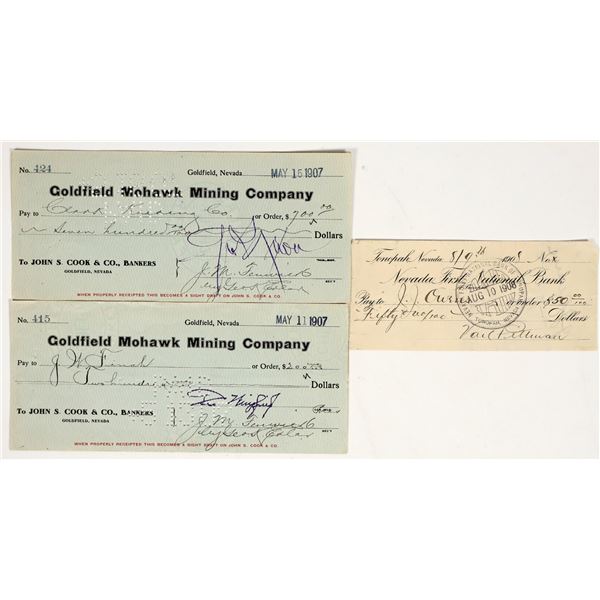 No. 424 Goldfield, Nevada MAY 15 1907
Goldfield Mohawk Mining Company
Pay to Co. or Order, $700 00
Seven hundred Dollars
To JOHN S. COOK & CO., BANKERS
GOLDFIELD, NEVADA
J. M. Fenwick
SEC'Y
WHEN PROPERLY RECEIPTED THIS BECOMES A SIGHT DRAFT ON JOHN S. COOK & CO.
No. 415 Goldfield, Nevada, MAY 11 1907
Goldfield Mohawk Mining Company
Pay to J. W. French or Order, $200
Two hundred Dollars
To JOHN S. COOK & CO., BANKERS
GOLDFIELD, NEVADA
J. M. Fenwick
SEC'Y
WHEN PROPERLY RECEIPTED THIS BECOMES A SIGHT DRAFT ON JOHN S. COOK & CO.
Tonopah, Nevada, 8/9th 1908 No x
Nevada First National Bank
Pay to J. J. Owen or order $50 00/100
Fifty & no/100 Dollars
Vail Pittman
AUG 10 1908
TONOPAH, NEVADA